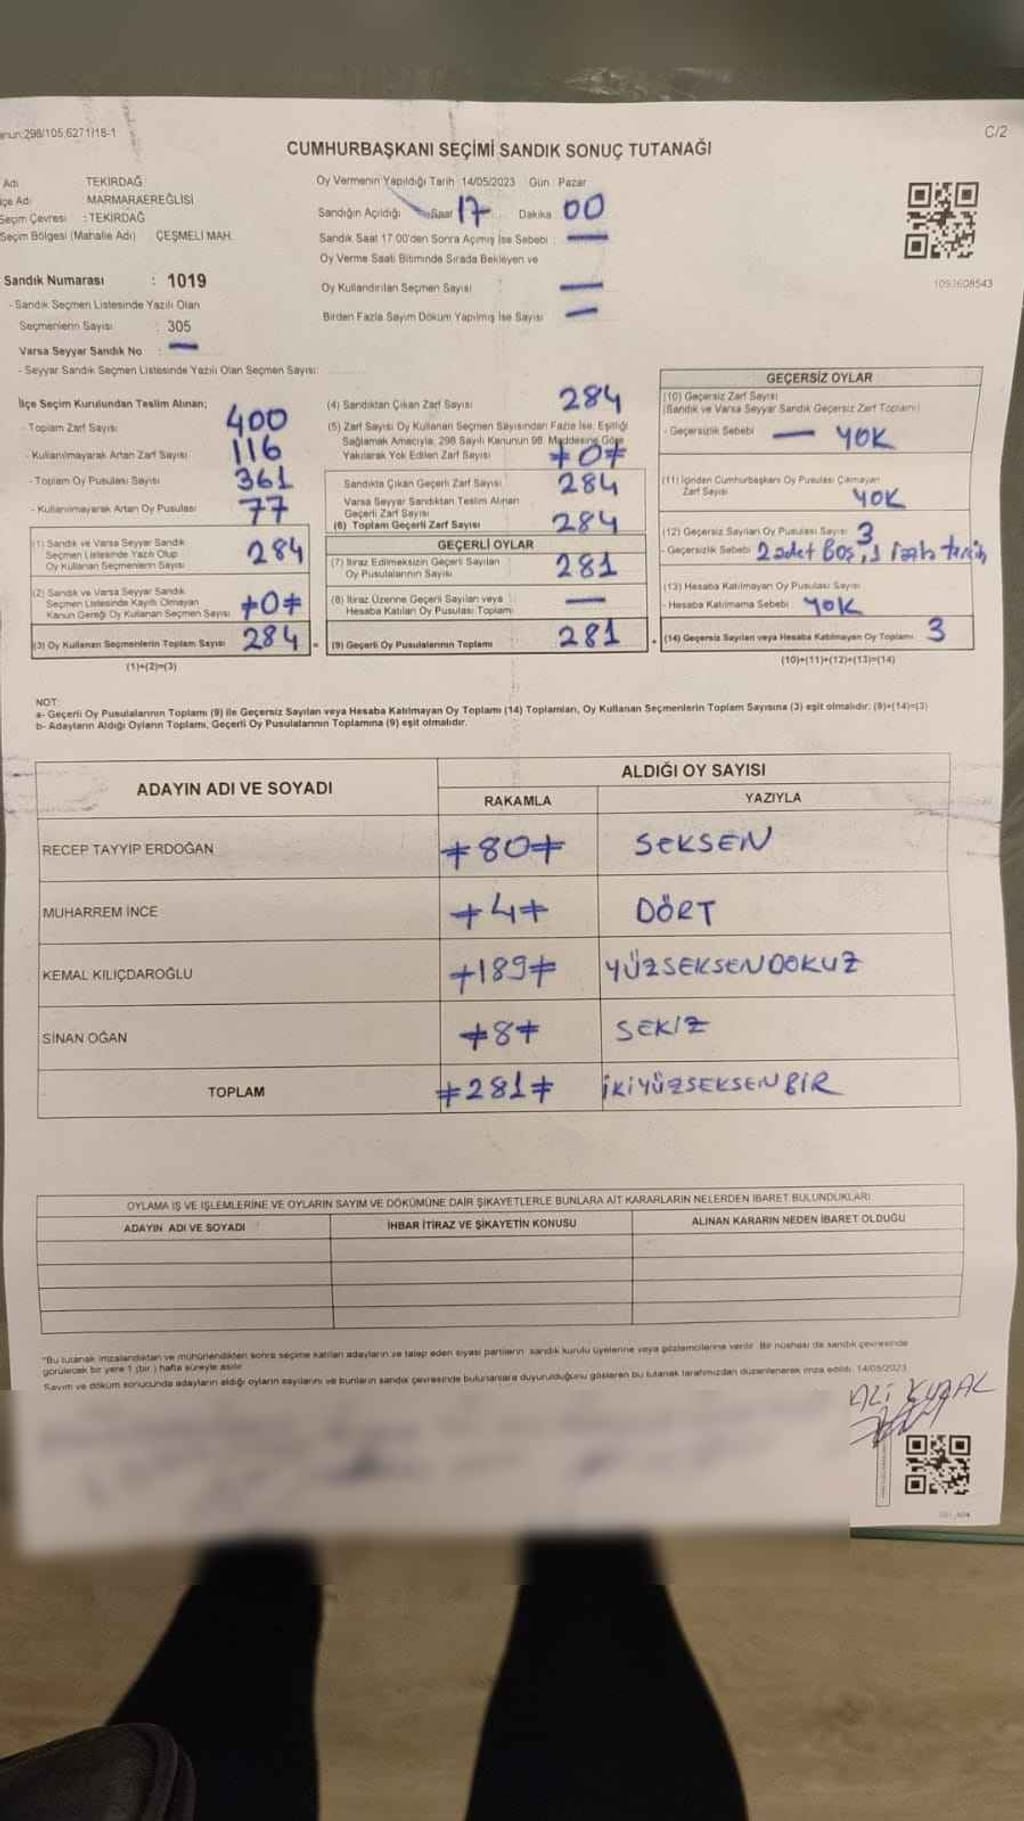 298/105,6271/18-1
C/2
CUMHURBAŞKANI SEÇİMİ SANDIK SONUÇ TUTANAĞI
Adı TEKİRDAĞ
İlçe Adı MARMARAEREĞLİSİ
Seçim Çevresi : TEKİRDAĞ
Seçim Bölgesi (Mahalle Adı) ÇEŞMELİ MAH.
Sandık Numarası : 1019
- Sandık Seçmen Listesinde Yazılı Olan
Seçmenlerin Sayısı : 305
Varsa Seyyar Sandık No : —
- Seyyar Sandık Seçmen Listesinde Yazılı Olan Seçmen Sayısı:
Oy Vermenin Yapıldığı Tarih :14/05/2023 Gün : Pazar
Sandığın Açıldığı Saat 17 Dakika 00
Sandık Saat 17.00'den Sonra Açılmış İse Sebebi : —
Oy Verme Saati Bitiminde Sırada Bekleyen ve
Oy Kullandırılan Seçmen Sayısı : —
Birden Fazla Sayım Döküm Yapılmış İse Sayısı : —
1093608543
İlçe Seçim Kurulundan Teslim Alınan;
- Toplam Zarf Sayısı 400
- Kullanılmayarak Artan Zarf Sayısı 116
- Toplam Oy Pusulası Sayısı 361
- Kullanılmayarak Artan Oy Pusulası 77
(1) Sandık ve Varsa Seyyar Sandık
Seçmen Listesinde Yazılı Olup
Oy Kullanan Seçmenlerin Sayısı 284
(2) Sandık ve Varsa Seyyar Sandık
Seçmen Listesinde Kayıtlı Olmayan
Kanun Gereği Oy Kullanan Seçmen Sayısı ≠0≠
(3) Oy Kullanan Seçmenlerin Toplam Sayısı 284 =
(1)+(2)=(3)
(4) Sandıktan Çıkan Zarf Sayısı 284
(5) Zarf Sayısı Oy Kullanan Seçmen Sayısından Fazla İse, Eşitliği
Sağlamak Amacıyla, 298 Sayılı Kanunun 98. Maddesine Göre
Yakılarak Yok Edilen Zarf Sayısı ≠0≠
Sandıkta Çıkan Geçerli Zarf Sayısı 284
Varsa Seyyar Sandıktan Teslim Alınan
Geçerli Zarf Sayısı
(6) Toplam Geçerli Zarf Sayısı 284
GEÇERLİ OYLAR
(7) İtiraz Edilmeksizin Geçerli Sayılan
Oy Pusulalarının Sayısı 281
(8) İtiraz Üzerine Geçerli Sayılan veya
Hesaba Katılan Oy Pusulası Toplamı —
(9) Geçerli Oy Pusulalarının Toplamı 281
GEÇERSİZ OYLAR
(10) Geçersiz Zarf Sayısı
(Sandık ve Varsa Seyyar Sandık Geçersiz Zarf Toplamı)
- Geçersizlik Sebebi — YOK
(11) İçinden Cumhurbaşkanı Oy Pusulası Çıkmayan
Zarf Sayısı YOK
(12) Geçersiz Sayılan Oy Pusulası Sayısı 3
- Geçersizlik Sebebi 2 adet Boş, 1
(13) Hesaba Katılmayan Oy Pusulası Sayısı
- Hesaba Katılmama Sebebi YOK
(14) Geçersiz Sayılan veya Hesaba Katılmayan Oy Toplamı 3
(10)+(11)+(12)+(13)=(14)
NOT:
a- Geçerli Oy Pusulalarının Toplamı (9) ile Geçersiz Sayılan veya Hesaba Katılmayan Oy Toplamı (14) Toplamları, Oy Kullanan Seçmenlerin Toplam Sayısına (3) eşit olmalıdır. (9)+(14)=(3)
b- Adayların Aldığı Oyların Toplamı, Geçerli Oy Pusulalarının Toplamına (9) eşit olmalıdır.
ADAYIN ADI VE SOYADI
ALDIĞI OY SAYISI
RAKAMLA YAZIYLA
RECEP TAYYİP ERDOĞAN ≠80≠ SEKSEN
MUHARREM İNCE ≠4≠ DÖRT
KEMAL KILIÇDAROĞLU ≠189≠ YÜZSEKSENDOKUZ
SİNAN OĞAN ≠8≠ SEKİZ
TOPLAM ≠281≠ İKİYÜZSEKSENBİR
OYLAMA İŞ VE İŞLEMLERİNE VE OYLARIN SAYIM VE DÖKÜMÜNE DAİR ŞİKAYETLERLE BUNLARA AİT KARARLARIN NELERDEN İBARET BULUNDUKLARI
ADAYIN ADI VE SOYADI İHBAR İTİRAZ VE ŞİKAYETİN KONUSU ALINAN KARARIN NEDEN İBARET OLDUĞU
"Bu tutanak imzalandıktan ve mühürlendikten sonra seçime katılan adayların ve talep eden siyasi partilerin sandık kurulu üyelerine veya gözlemcilerine verilir. Bir nüshası da sandık çevresinde
görülecek bir yere 1 (bir) hafta süreyle asılır.
Sayım ve döküm sonucunda adayların aldığı oyların sayılarını ve bunların sandık çevresinde bulunanlara duyurulduğunu gösteren bu tutanak tarafımızdan düzenlenerek imza edildi. 14/05/2023
ALİ KURAL